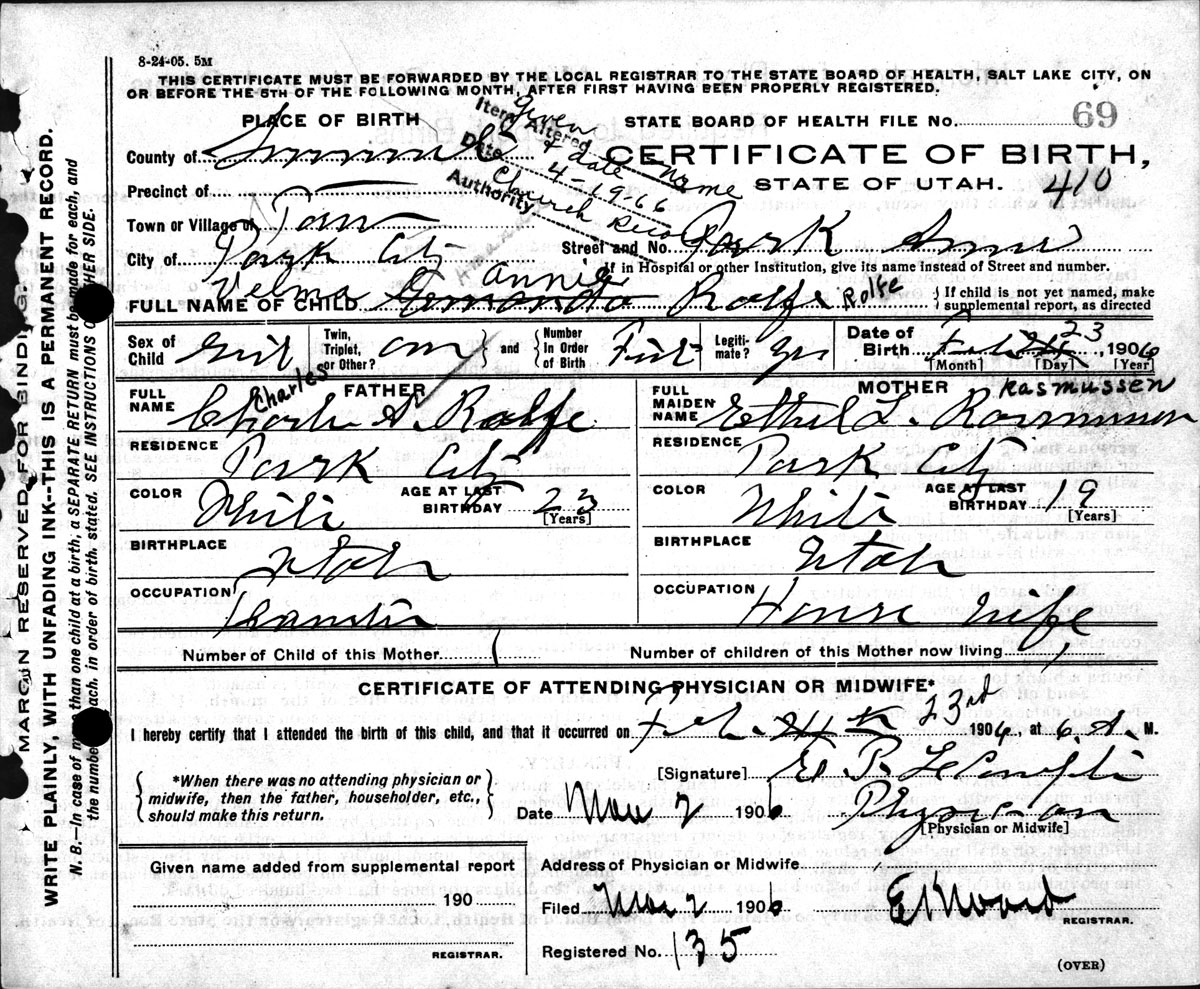 8-24-05. 5M
THIS CERTIFICATE MUST BE FORWARDED BY THE LOCAL REGISTRAR TO THE STATE BOARD OF HEALTH, SALT LAKE CITY, ON
OR BEFORE THE 5TH OF THE FOLLOWING MONTH, AFTER FIRST HAVING BEEN PROPERLY REGISTERED.
PLACE OF BIRTH
STATE BOARD OF HEALTH FILE No. 69
Item Altered Given name
& date
Date 4-19-66
Authority Church Reco
County of Summit
CERTIFICATE OF BIRTH,
STATE OF UTAH. 410
Precinct of
Town or Village of
City of Park City
Street and No. Park Ave
If in Hospital or other Institution, give its name instead of Street and number.
Velma Annie Rolfe
FULL NAME OF CHILD Rolfe
If child is not yet named, make
supplemental report, as directed
Sex of Child Girl
Twin, Triplet, or Other? and Number In Order of Birth First
Legitimate? Yes
Date of Birth Feb 24 23, 1906
[Month] [Day] [Year]
FATHER
FULL NAME Charles A. Rolfe
Charles
RESIDENCE Park City
COLOR White AGE AT LAST BIRTHDAY 23 [Years]
BIRTHPLACE Utah
OCCUPATION Teamster
MOTHER
FULL MAIDEN NAME Ethel L. Rasmussen
Rasmussen
RESIDENCE Park City
COLOR White AGE AT LAST BIRTHDAY 19 [Years]
BIRTHPLACE Utah
OCCUPATION House Wife
Number of Child of this Mother 1 Number of children of this Mother now living 1
CERTIFICATE OF ATTENDING PHYSICIAN OR MIDWIFE*
I hereby certify that I attended the birth of this child, and that it occurred on Feb. 24th 23rd 1906, at 6 A. M.
*When there was no attending physician or
midwife, then the father, householder, etc.,
should make this return.
[Signature] E. P. LeCompte
Date Mar 2 1906 Physician
[Physician or Midwife]
Given name added from supplemental report
190
REGISTRAR.
Address of Physician or Midwife
Filed Mar 2 1906 REGISTRAR.
Registered No. 135
(OVER)
MARGIN RESERVED FOR BINDING.
WRITE PLAINLY, WITH UNFADING INK--THIS IS A PERMANENT RECORD.
N. B.—In case of more than one child at a birth, a SEPARATE RETURN must be made for each, and
the number each. in order of birth. stated. SEE INSTRUCTIONS OTHER SIDE.